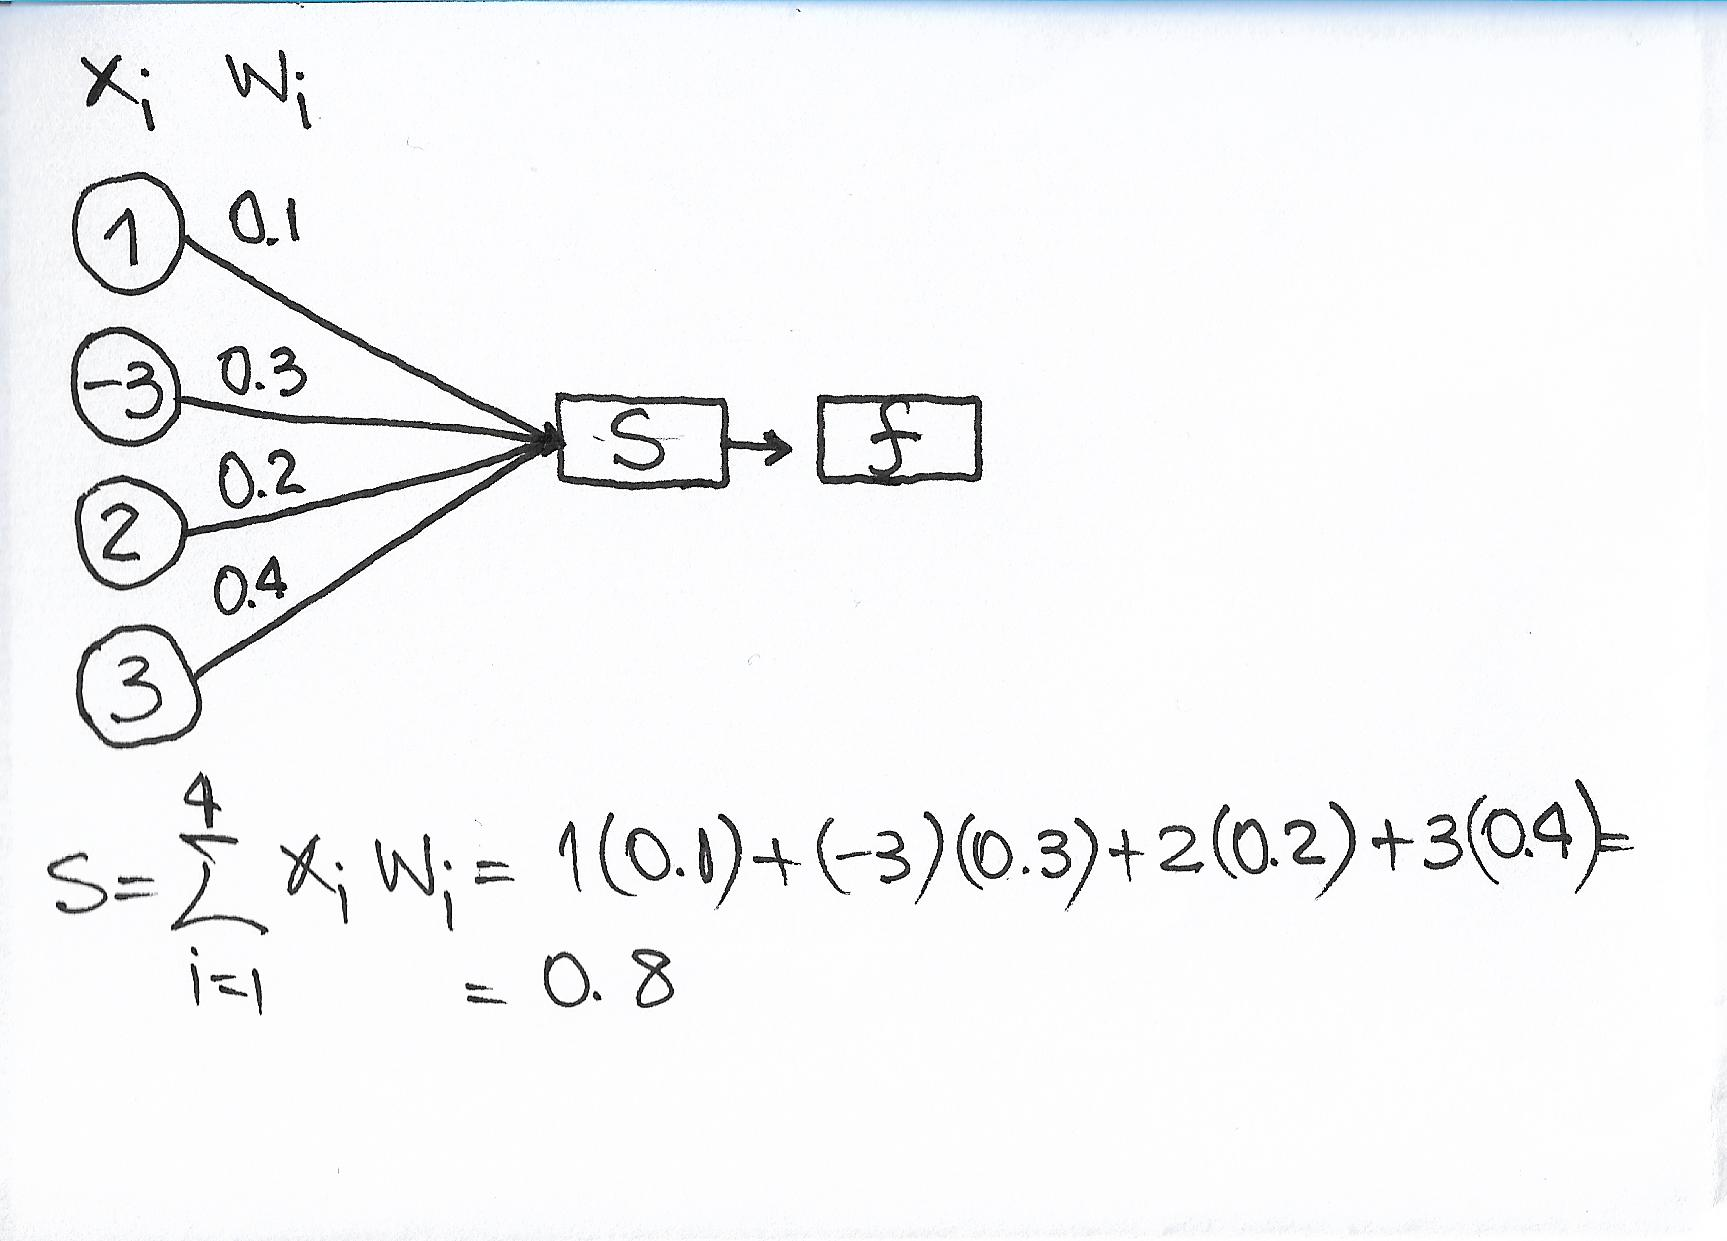 xi wi
1 0.1
-3 0.3
2 0.2
3 0.4
S f
4
S=∑ xi wi = 1(0.1)+(-3)(0.3)+2(0.2)+3(0.4)=
i=1
= 0.8